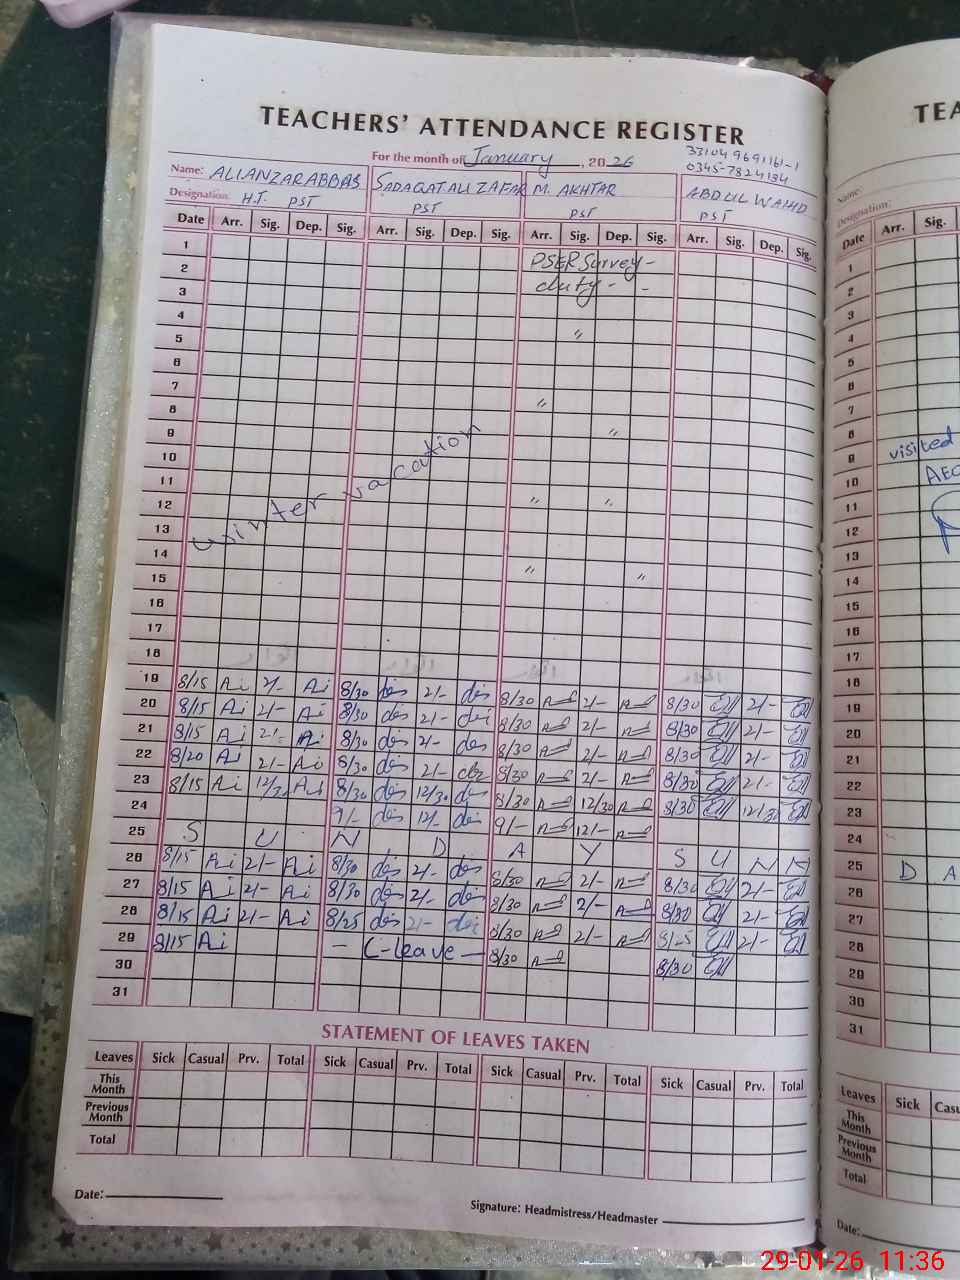 TEACHERS' ATTENDANCE REGISTER
TEA
For the month of January, 2026
33104 9691161-1
0345-7824134
Name: ALIANZARABBAS SADAQAT ALI ZAFAR M. AKHTAR ABDUL WAHID
Name:
Designation. H.T. PST PST PST PST
Designation:
Date Arr. Sig. Dep. Sig. Arr. Sig. Dep. Sig. Arr. Sig. Dep. Sig. Arr. Sig. Dep. Sig.
Date Arr. Sig.
1
2 PSER Survey-
3 duty- -
4
5 "
6
7
8 "
9 "
10
11
12 " "
13
14
15 " "
16
17
18
winter vacation
19 8/15 Ai 2/- Ai 8/30 2/- 8/30 2/- 8/30 2/-
20 8/15 Ai 2/- Ai 8/30 2/- 8/30 2/- 8/30 2/-
21 8/15 Ai 2/- Ai 8/30 2/- 8/30 2/- 8/30 2/-
22 8/20 Ai 2/- Ai 8/30 2/- 8/30 2/- 8/30 2/-
23 8/15 Ai 12/30 Ai 8/30 12/30 8/30 12/30 8/30 12/30
24 9/- 12/- 9/- 12/-
25 S U N D A Y S U N N
26 8/15 Ai 2/- Ai 8/30 2/- 8/30 2/- 8/30 2/-
27 8/15 Ai 2/- Ai 8/30 2/- 8/30 2/- 8/30 2/-
28 8/15 Ai 2/- Ai 8/25 2/- 8/30 2/- 8/25 2/-
29 8/15 Ai - C-leave - 8/30 8/30
30
31
1
2
3
4
5
6
7
8
visited
9
AEO
10
11
12
13
14
15
16
17
18
19
20
21
22
23
24
25 D A
26
27
28
29
30
31
STATEMENT OF LEAVES TAKEN
Leaves Sick Casual Prv. Total Sick Casual Prv. Total Sick Casual Prv. Total Sick Casual Prv. Total
This Month
Previous Month
Total
Leaves Sick Casu
This Month
Previous Month
Total
Date:
Signature: Headmistress/Headmaster
Date:
29-01-26 11:36